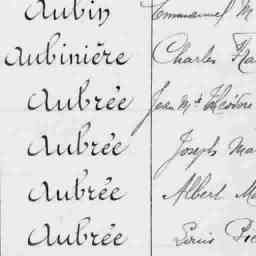 Aubin Emmanuel M
Aubinière Charles
Aubrée Jean Mie Théodore
Aubrée Joseph Ma
Aubrée Albert
Aubrée Louis